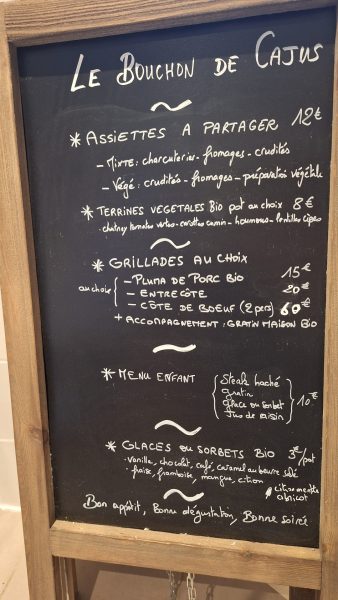 Le Bouchon de Cajus
* Assiettes à partager 12€
- Mixte: charcuteries - fromages - crudités
- Végé: crudités - fromages - préparations végétale
* Terrines Vegetales Bio pot au choix 8€
chutney tomates vertes - carottes cumin - houmous - lentilles cèpes
* Grillades au choix
au choix { - Pluma de Porc Bio 15€
- Entrecôte 20€
- Côte de Boeuf (2 pers) 60€
+ Accompagnement: Gratin Maison Bio
* Menu Enfant { Steak haché
Gratin
Glace ou Sorbet
Jus de raisin } 10€
* Glaces ou Sorbets Bio 3€/pot
· vanille, chocolat, café, caramel au beurre salé
· fraise, framboise, mangue, citron
citron menthe
abricot
Bon appétit, Bonne dégustation, Bonne soirée